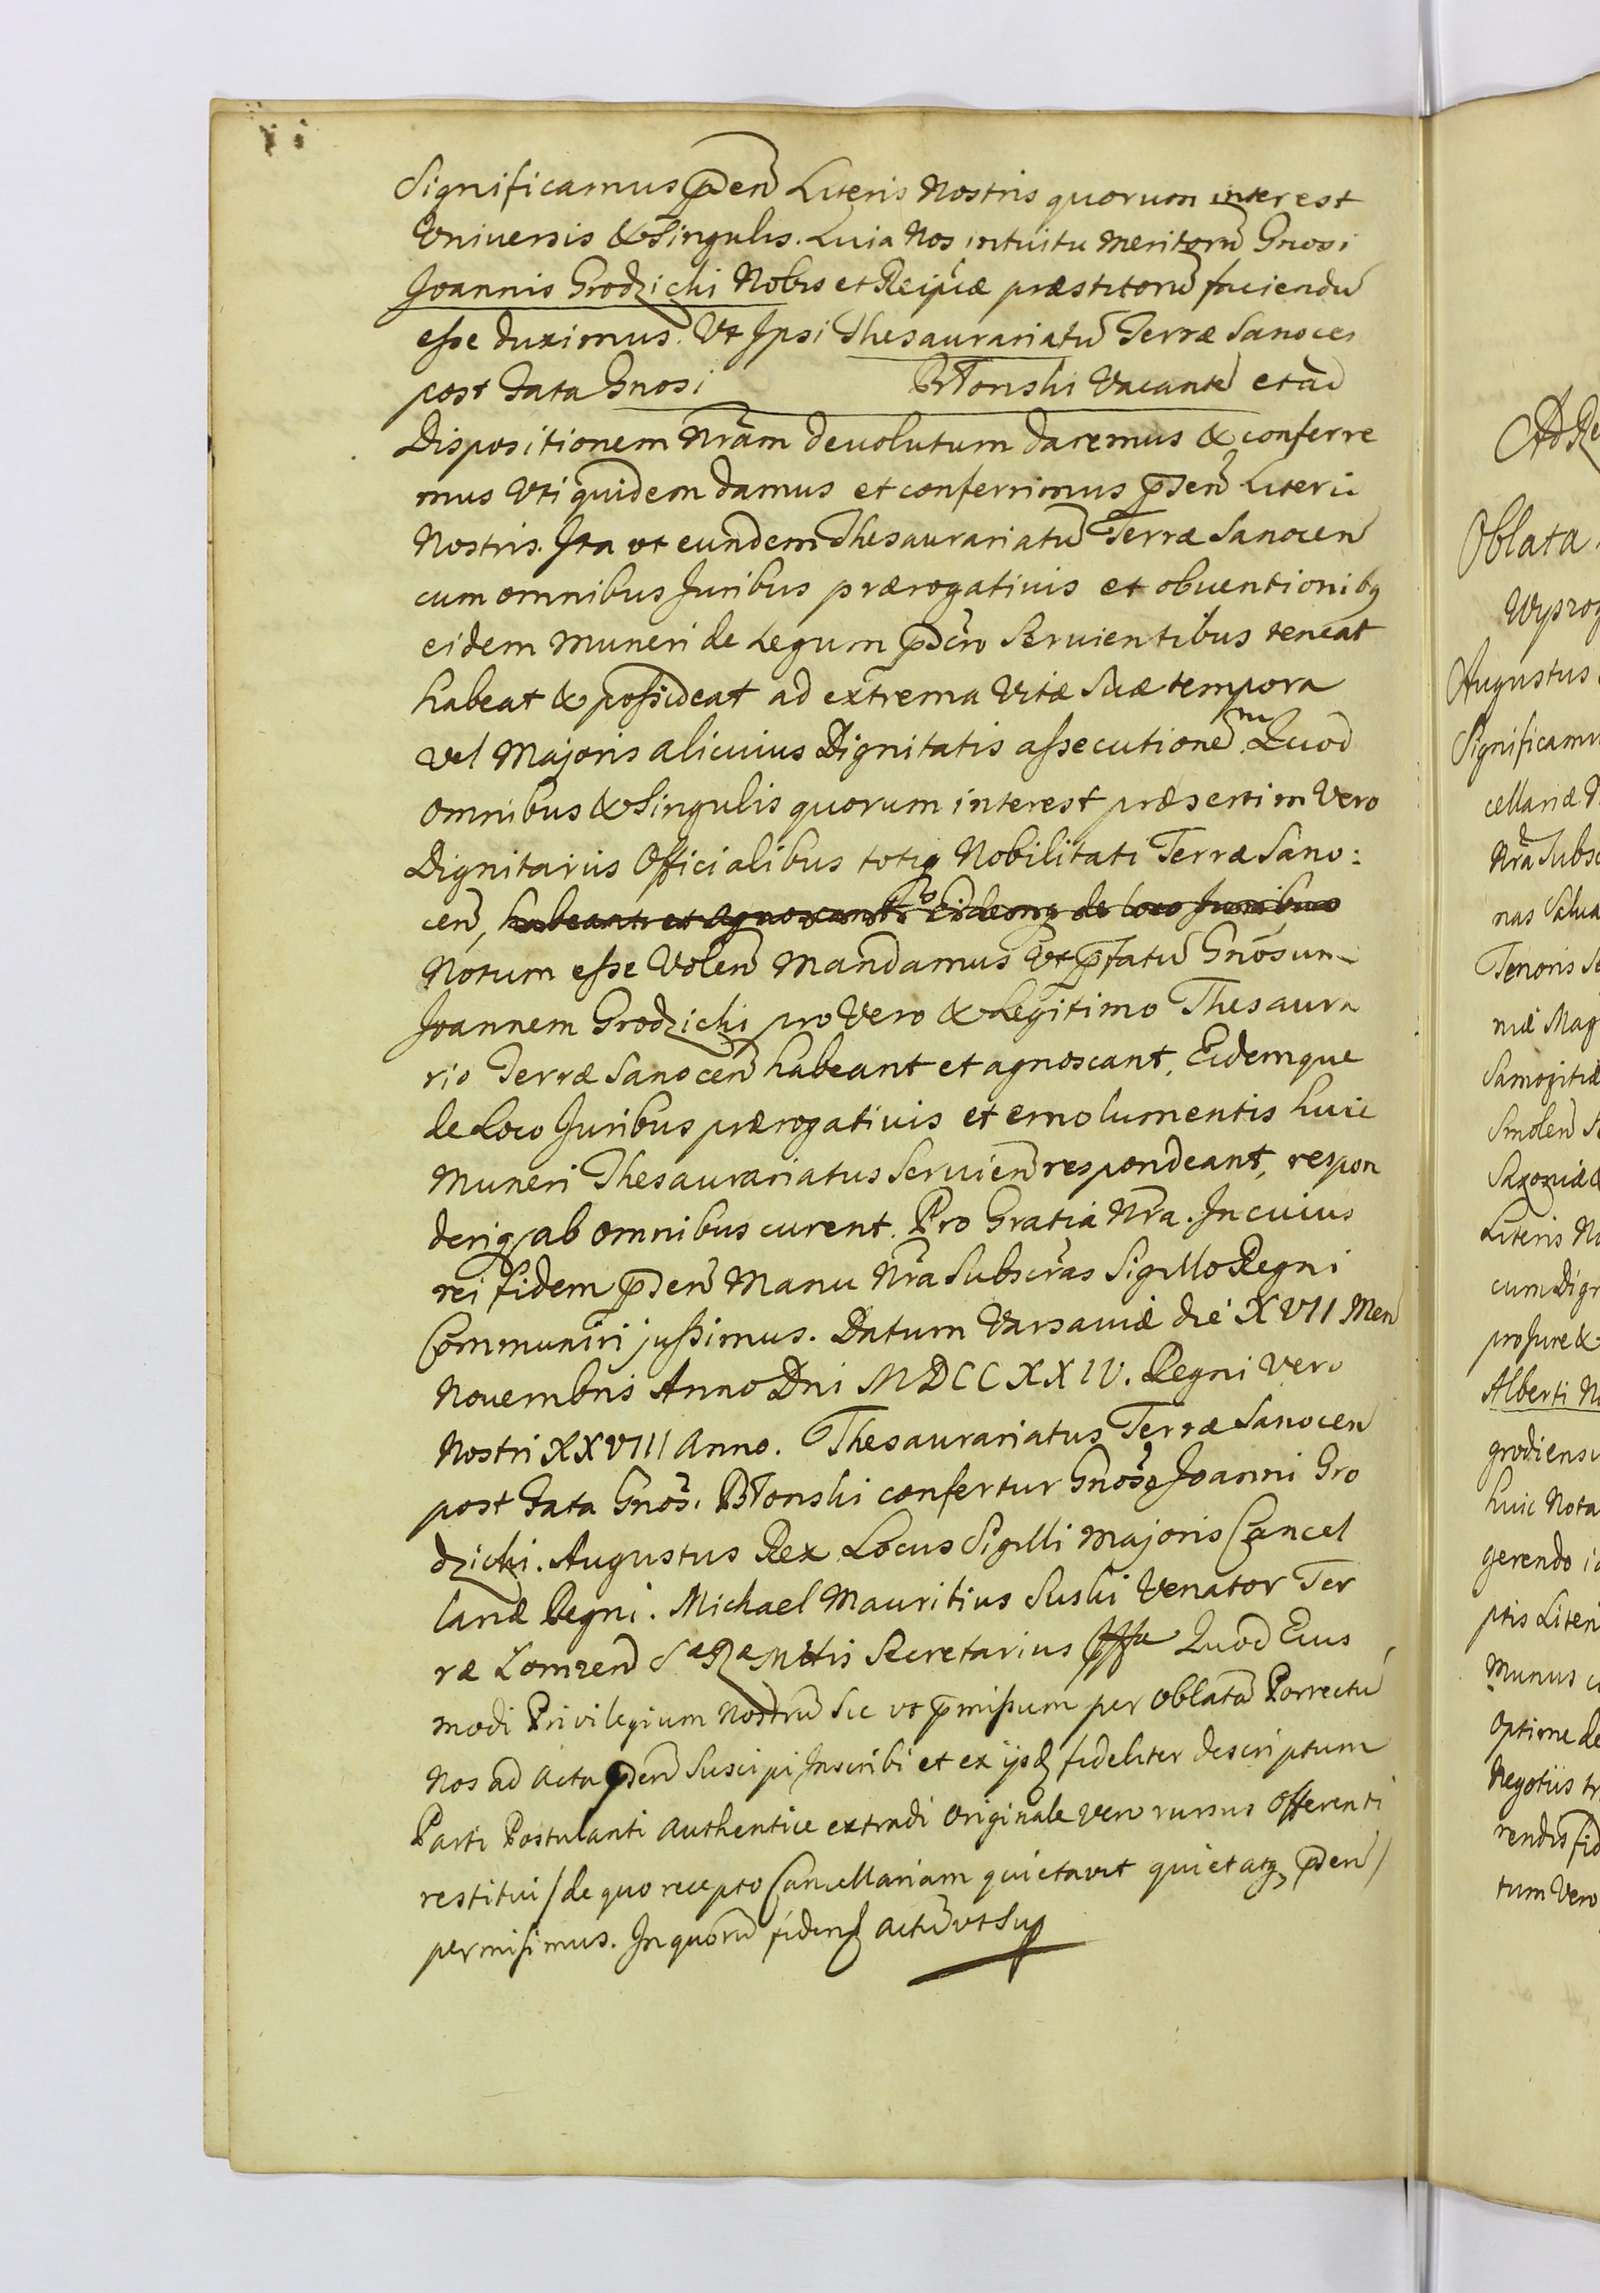 Significamus p̄sen̄ Literis Nostris quorum interest
Vniuersis & Singulis. Quia Nos intuitu meritorū Gnosi
Joannis Grodzicki Nobis et Reipĉæ præstitorū faciendū
esse duximus. Vt Ipsi Thesaurariatū Terræ Sanocen̄
post Fata Gnosi Błonski Vacantē et ad
Dispositionem Nr̄am deuolutum daremus & conferre
mus Vti quidem damus et conferrimus p̄sen̄ Literis
Nostris. Ita vt eundem Thesaurariatū Terræ Sanocen̄
cum omnibus Juribus prærogatiuis et obuentionibq
eidem Muneri de Legum p̄scr̄o Seruientibus teneat
habeat & possideat ad extrema Vitæ Suæ tempora
vel Majoris alicuius Dignitatis assecutionem. Quod
omnibus & Singulis quorum interest præsertim Vero
Dignitariis Officialibus totiq Nobilitati Terræ Sano:
cen̄, habeant et agnoscant Eidemq de loco Juribus
Notum esse Volen̄ Mandamus Vt p̄fatū Gnosum
Joannem Grodzicki pro Vero & Legitimo Thesaura
rio Terræ Sanocen̄ habeant et agnoscant, Eidemque
de Loco Juribus prærogatiuis et emolumentis huic
Muneri Thesaurariatus Seruien̄ respondeant, respon
deriq ab omnibus curent. Pro Gratia Nr̄a. In cuius
rei fidem p̄sen̄ Manu Nr̄a Subscr̄as Sigillo Regni
Communiri jussimus. Datum Varsaviæ die XVII Men̄
Nouembris Anno Dni MDCCXXIV. Regni Vero
Nostri XXVIII Anno. Thesaurariatus Terræ Sanocen̄
post Fata Gnosi Błonski confertur Gnoso Joanni Gro
dzicki. Augustus Rex Locus Sigilli Majoris Cancel
lariæ Regni. Michael Mauritius Suski Venator Ter
ræ Lomzen̄ S^æ R^æ Mttis Secretarius Quod Eius
modi Privilegium Nostrū Sic vt p̄missum per Oblatā Porrectū
Nos ad Acta p̄sen̄ Suscipi Inscribi et ex ijsd fideliter descriptum
Parti Postulanti Authentice extradi Originale vero rursus Offerenti
restitui / de quo recepto Cancellariam quietavit quietatq p̄sen̄ /
permisimus. In quorū fidem Actū vt Sup
Ad Re
Oblata
Wypro
Augustus
Significamu
cellariæ N
Nr̄a Subsc
nas Salua
Tenoris Se
niæ Mag
Samogitiæ
Smolen̄ S
Saxoniæ &
Literis No
cum Dign
pro Jure &
Alberti N
grodiensi
huic Nota
gerendo i
ptis Liter
Munus c
Optime de
Negotiis tr
rendis fid
tum Vero